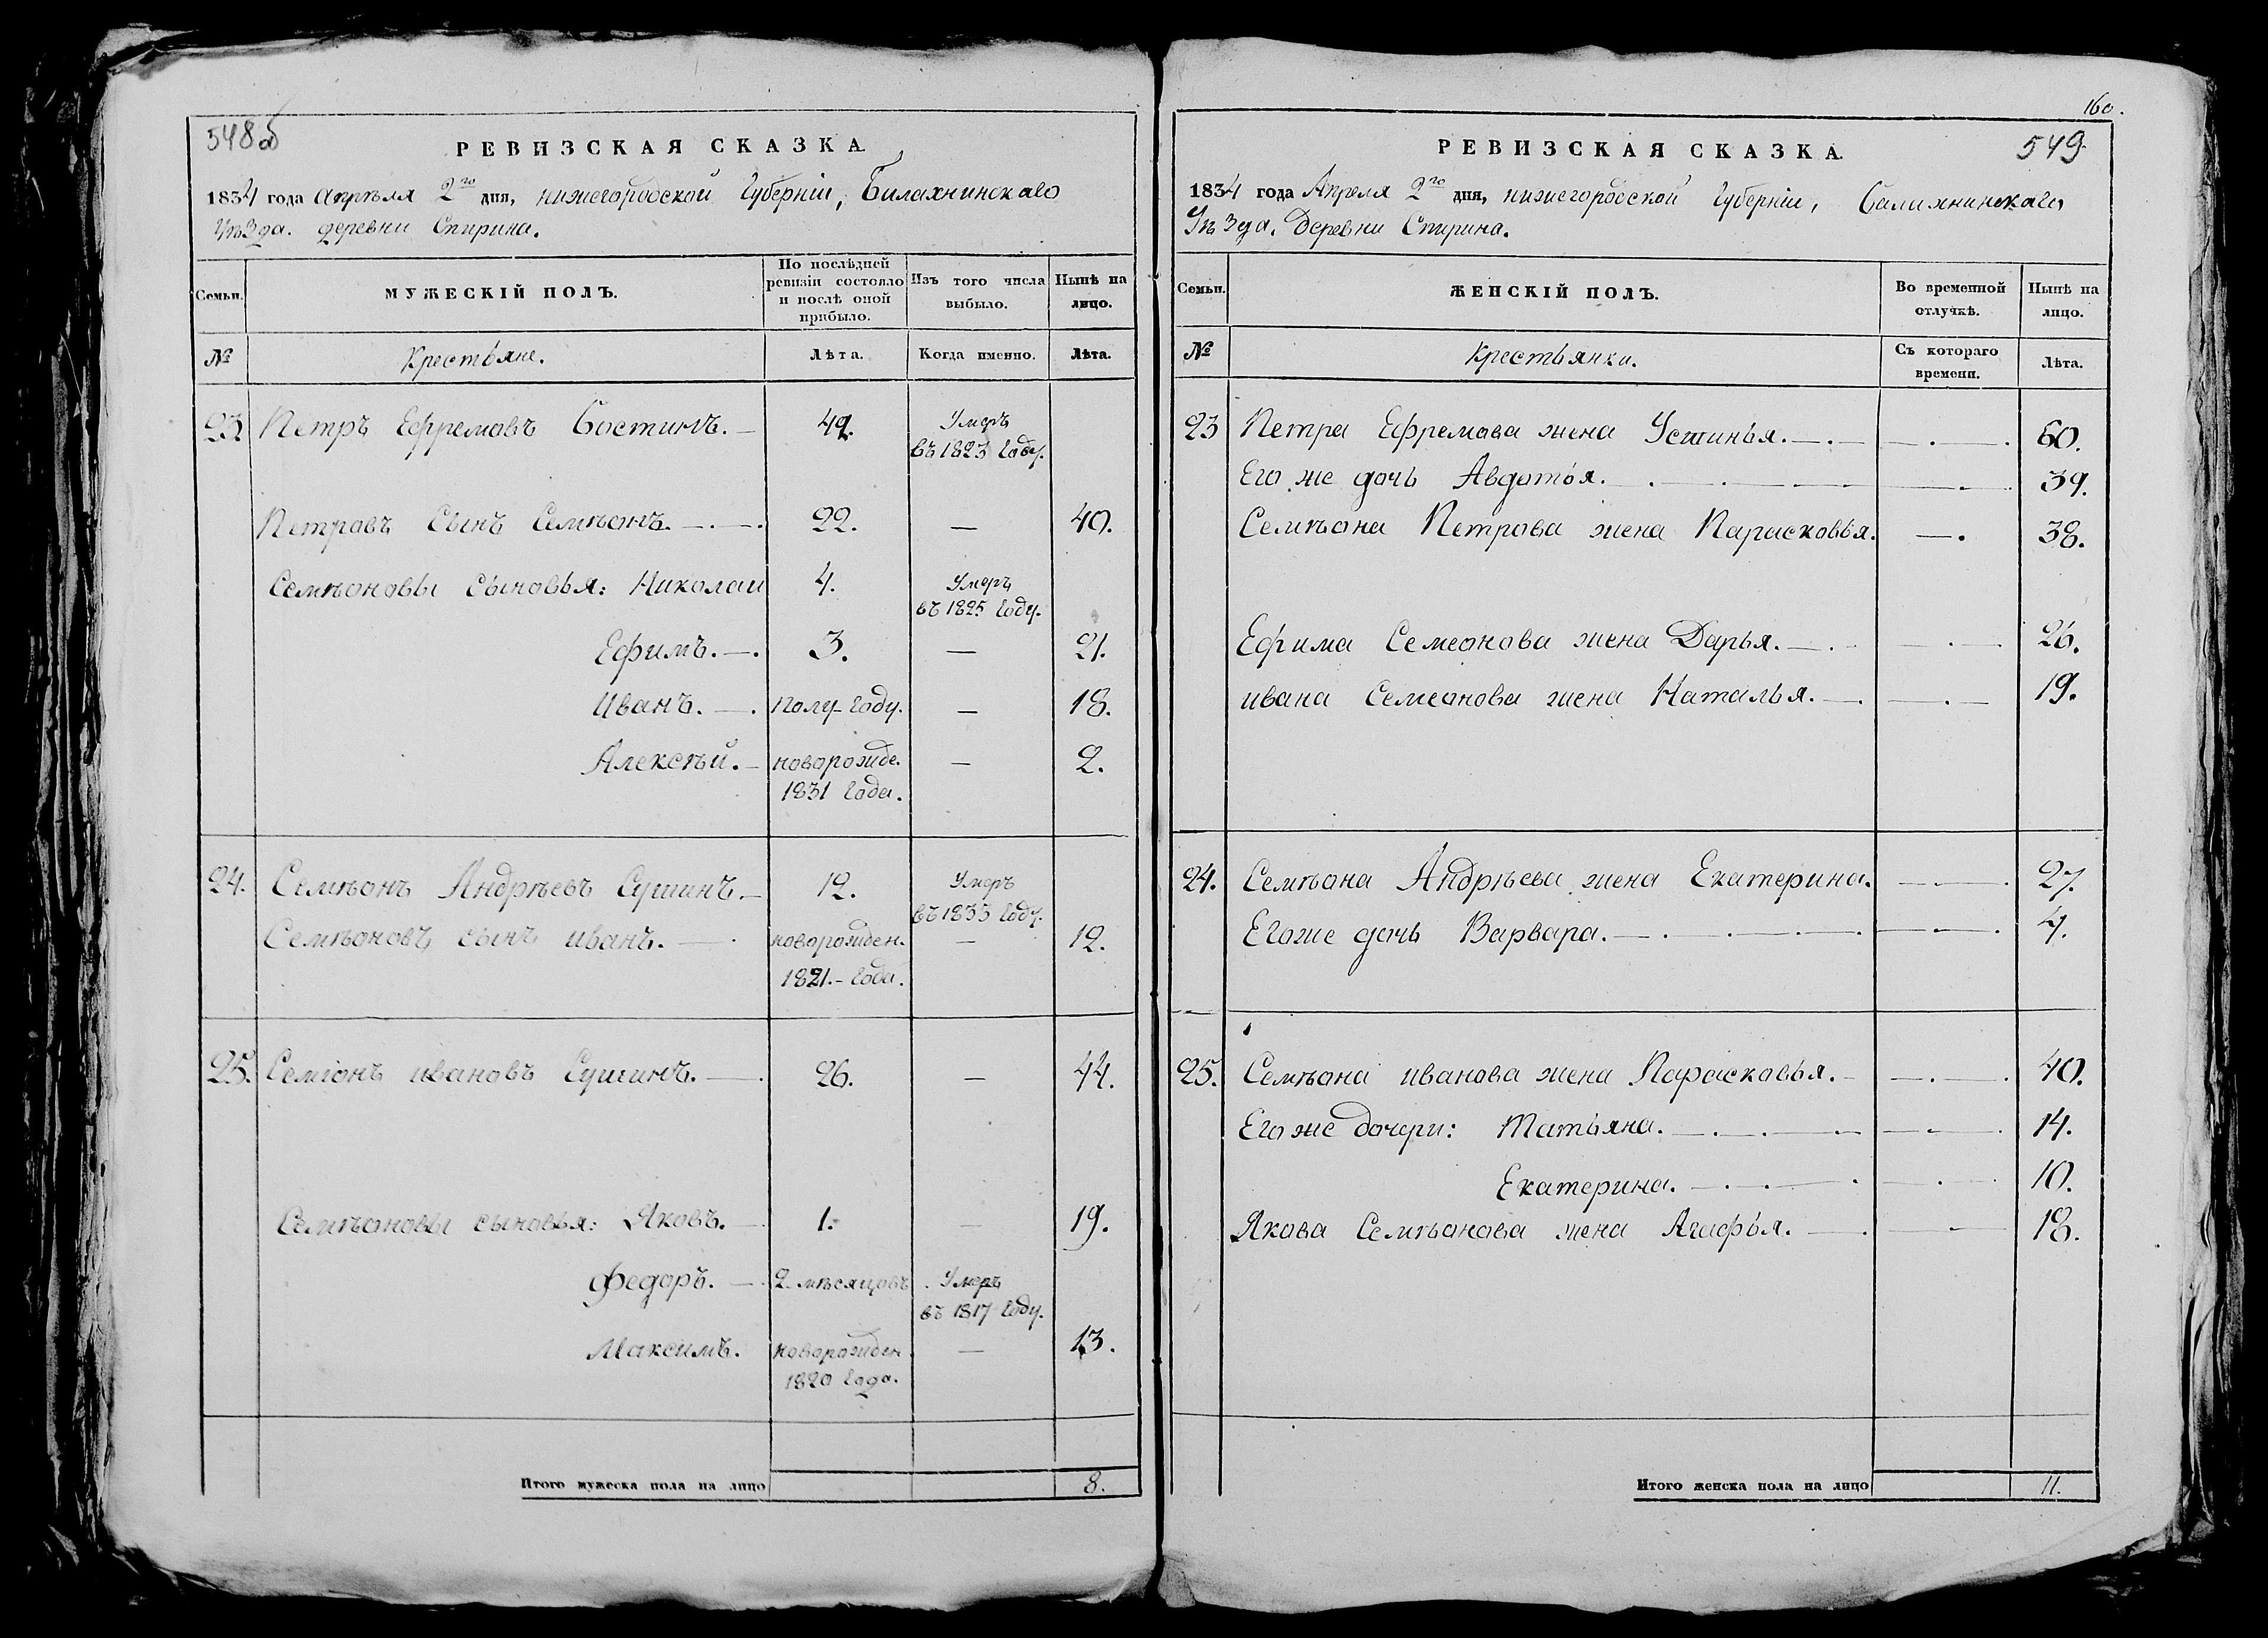 548об
РЕВИЗСКАЯ СКАЗКА.
1834 года Апрѣля 2го дня, нижегородской Губерніи, Балахнинскаго
Уѣзда. деревни Спирина.
Семьи.
МУЖЕСКІЙ ПОЛЪ.
По послѣдней ревизіи состояло и послѣ оной прибыло.
Изъ того числа выбыло.
Нынѣ на лицо.
№ Крестьяне. Лѣта. Когда именно. Лѣта.
23. Петръ Ефремовъ Костинъ. — 42. Умеръ
въ 1823 Году.
Петровъ Сынъ Семѣонъ. — 22. — 40.
Семѣоновы сыновья: Николай 4. Умеръ
въ 1825 Году.
Ефимъ. — 3. — 21.
Иванъ. — Полу-Году. — 18.
Алексѣй. — новорожде. — 2.
1831 Года.
24. Семѣонъ Андрѣевъ Сушинъ. — 12. Умеръ
въ 1833 Году.
Семѣоновъ сынъ иванъ. — новорожден. — 12.
1821. Года.
25. Семіонъ ивановъ Сушинъ. — 26. — 44.
Семѣоновы сыновья: Яковъ. — 1. — 19.
Федоръ. — 2 мѣсяцовъ. Умеръ
въ 1817 Году.
Максимъ. новорожден. — 13.
1820 Года.
Итого мужеска пола на лицо 8.
160.
549
РЕВИЗСКАЯ СКАЗКА.
1834 года Апреля 2го дня, нижегородской Губерніи, Балахнинскаго
Уѣзда. Деревни Спирина.
Семьи.
ЖЕНСКІЙ ПОЛЪ.
Во временной отлучкѣ.
Нынѣ на лицо.
№ Крестьянки. Съ котораго времени. Лѣта.
23 Петра Ефремова жена Устинья. — 60.
Его же дочь Авдотья. — 39.
Семѣона Петрова жена Парасковья. — 38.
Ефима Семеонова жена Дарья. — 26.
ивана Семеонова жена Наталья. — 19.
24. Семѣона Андрѣева жена Екатерина. — 27.
Егоже дочь Варвара. — 4.
25. Семѣона иванова жена Парасковья. — 40.
Его же дочери: Татьяна. — 14.
Екатерина. — 10.
Якова Семѣонова жена Агафья. — 18.
Итого женска пола на лицо 11.